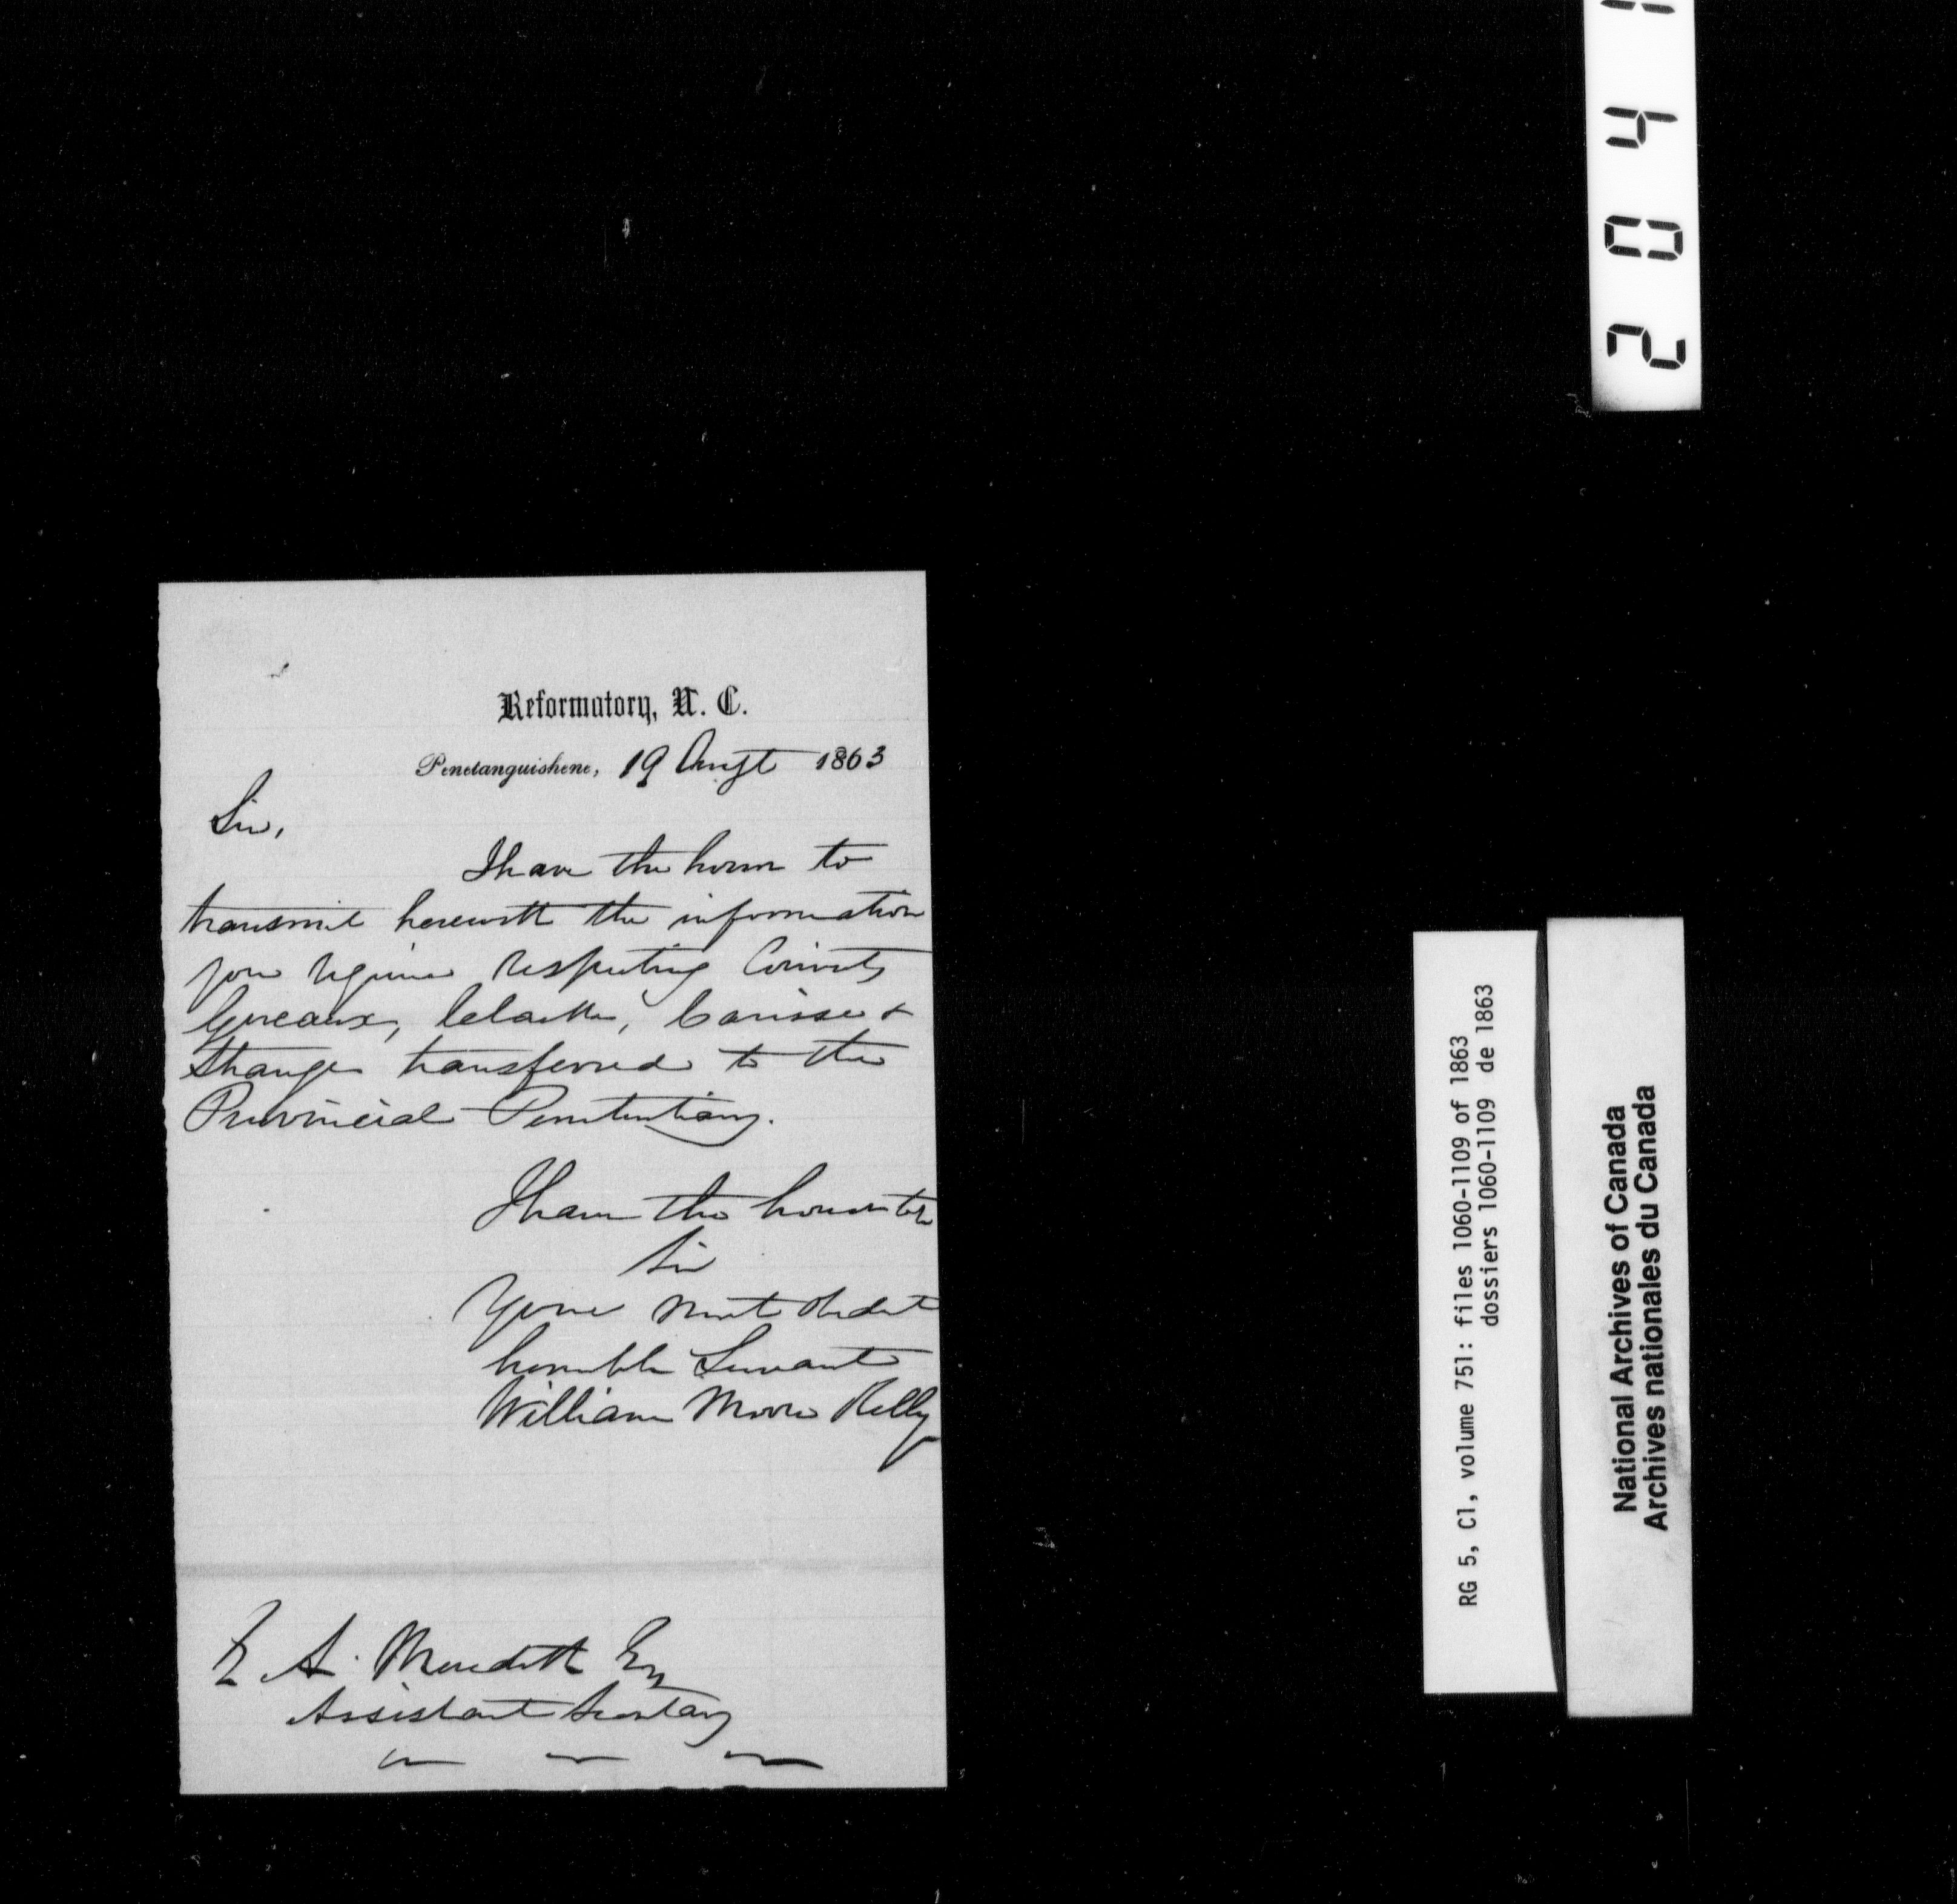 Reformatory, U. C.
Penetanguishene, 19 Augt 1863
Sir,
I have the honor to
transmit herewith the information
you require respecting Convicts
transferred to the
Provincial Penitentiary.
I have the honor to be
Sir
Your most obedt
humble Servant
William Moore Kelly
E A. Meredith Esq
Assistant Secretary
204
RG 5, C1, volume 751: files 1060-1109 of 1863
dossiers 1060-1109 de 1863
National Archives of Canada
Archives nationales du Canada